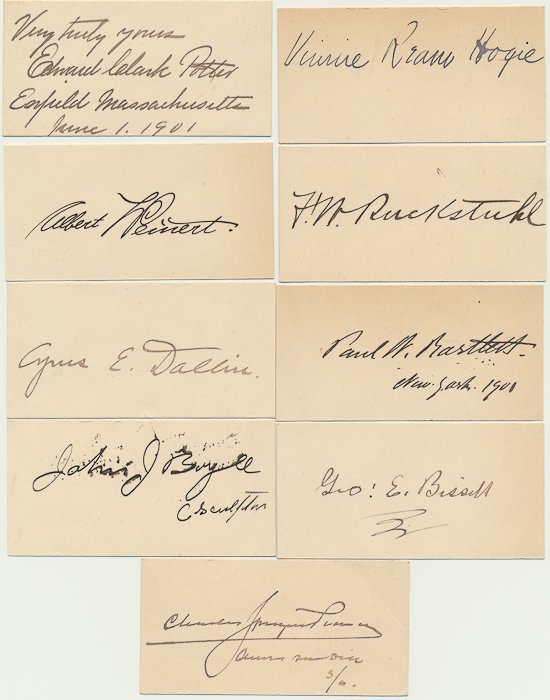 Very truly yours
Edward Clark Potter
Enfield Massachusetts
June 1. 1901
Vinnie Ream Hoxie
Albert Weinert.
F. W. Ruckstuhl
Cyrus E. Dallin.
Paul W. Bartlett.
New York. 1901
John J Boyle
Sculptor
Geo: E. Bissell
Charles